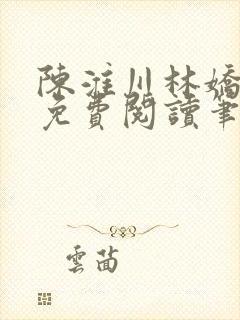 陳淮川林嬌
免費閱讀筆
雲茵